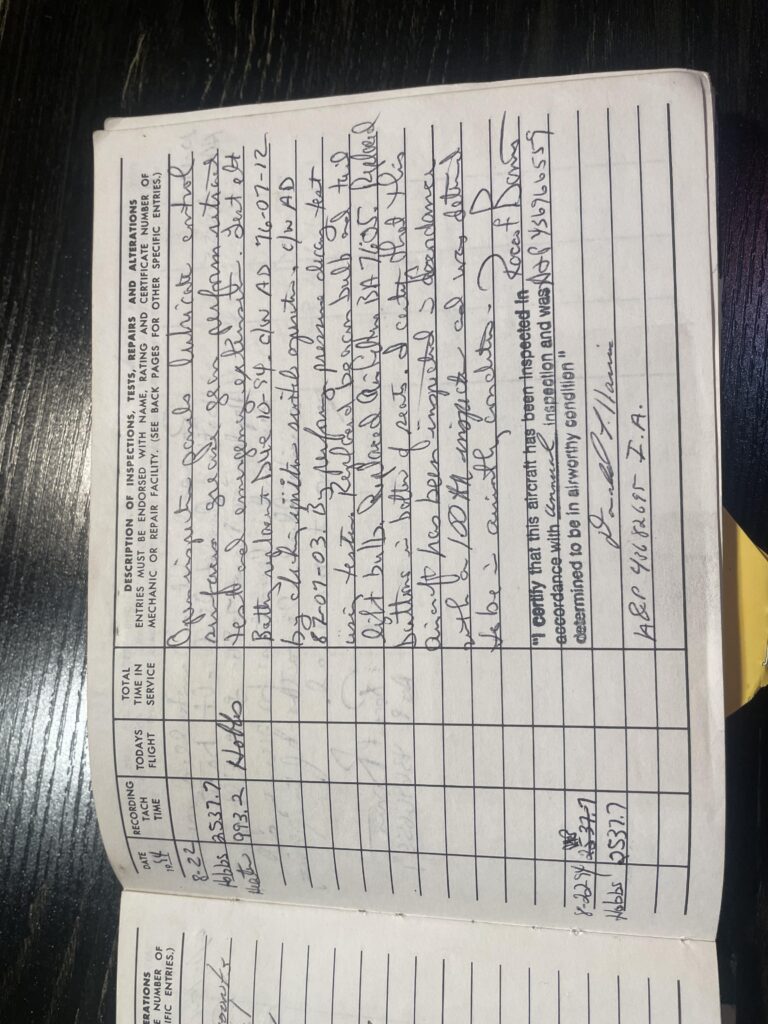 DATE
19 94
RECORDING TACH TIME
TODAYS FLIGHT
TOTAL TIME IN SERVICE
DESCRIPTION OF INSPECTIONS, TESTS, REPAIRS AND ALTERATIONS
ENTRIES MUST BE ENDORSED WITH NAME, RATING AND CERTIFICATE NUMBER OF
MECHANIC OR REPAIR FACILITY. (SEE BACK PAGES FOR OTHER SPECIFIC ENTRIES.)
8-22 Open inspection panels lubricate control
Hobbs 2537.7 surfaces grease gear perform retract
993.2 Hobbs test and emergency extension. Test elt
Battery Due 10-94. c/w AD 76-07-12
by checking ignition switch operation. c/w AD
82-07-03. By performing pressure decay test
Replaced beacon bulb and tail
light bulb. Replaced Air filter BA 7635. Replaced
buttons in bottom of seats. I certify that this
aircraft has been inspected in accordance
with a 100 HR inspection and was determined
to be in airworthy condition.
"I certify that this aircraft has been inspected in
accordance with annual inspection and was A&P 436966559
determined to be in airworthy condition"
8-22 94 2537.7
Hobbs 2537.7
A&P 43682695 I.A.
ERATIONS
E NUMBER OF
IFIC ENTRIES.)